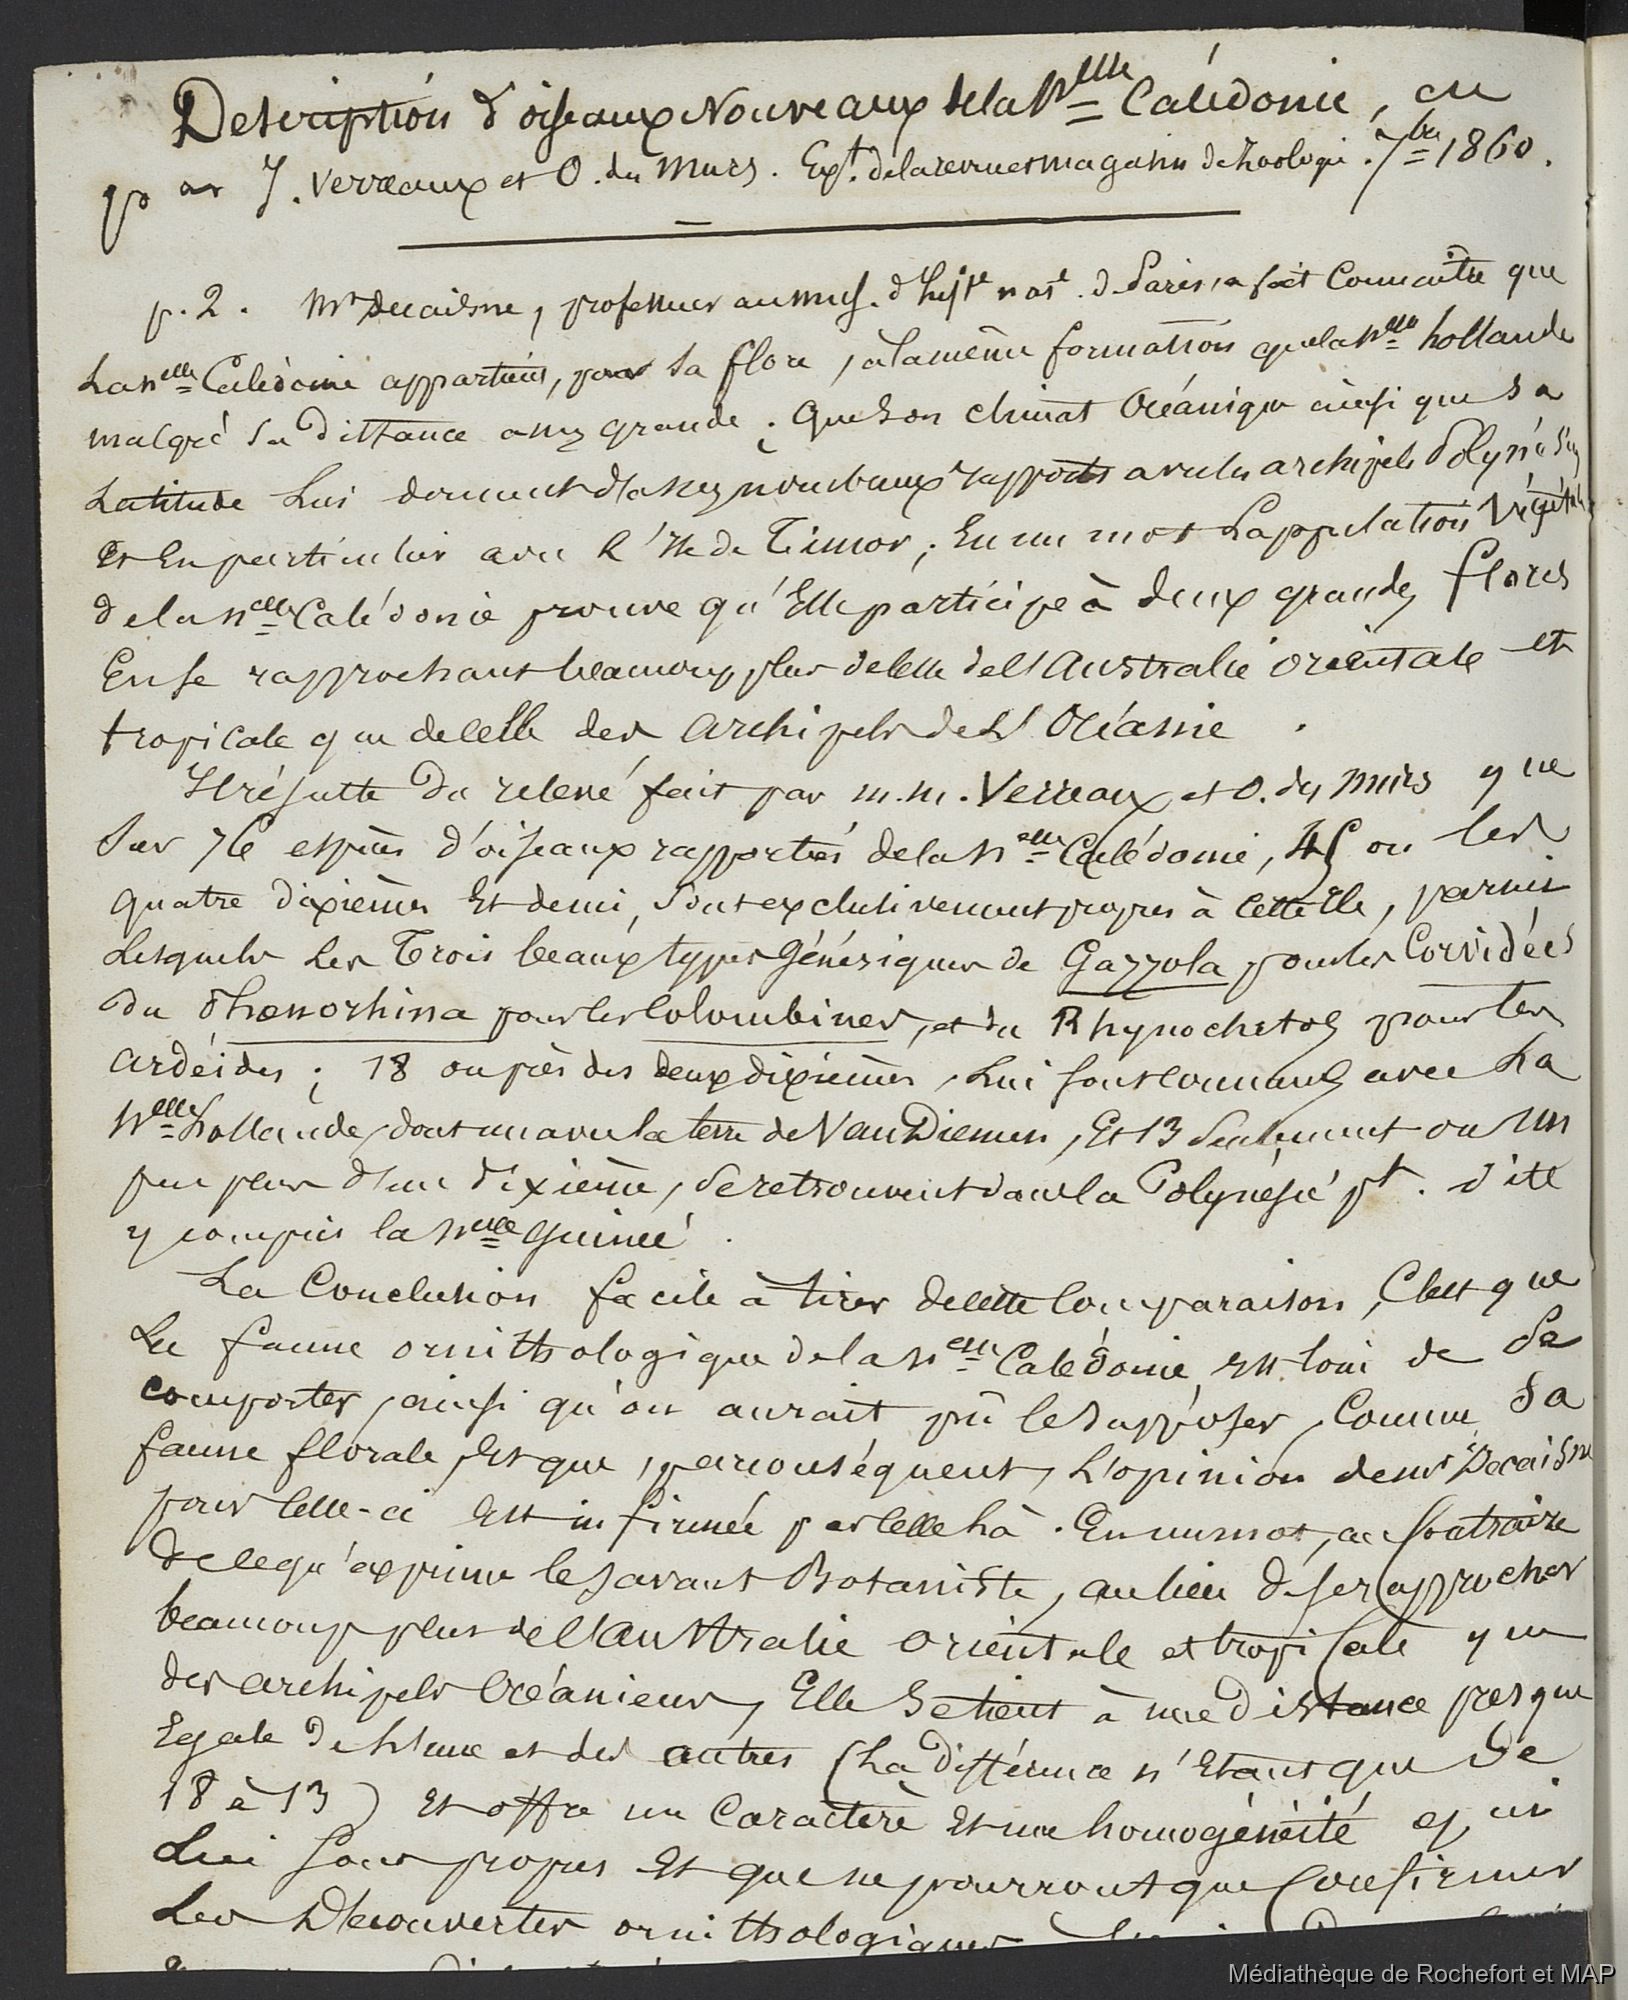 Description d'oiseaux Nouveaux de la Nelle Calédonie, etc
par J. Verreaux et O. des Murs. Ext. de la revue et magasin de Zoologie. 7bre 1860.
p. 2. Mr Decaisne, professeur au mus. d'histe nat. de Paris, a fait Connaitre que
La Nelle Calédonie appartient, pour sa flore, à la même formation que la Nelle hollande
malgré sa distance assez grande ; que son climat Océanique ainsi que sa
Latitude Lui donnent d'assez nombreux rapports avec les archipels Polynésiens
et En particulier avec l'Ile de Timor ; En un mot La population végétale
de la Nelle Calédonie prouve qu'Elle participe à deux grandes flores
En se rapprochant beaucoup plus de celle de l'Australie orientale et
tropicale que de celle des archipels de L'Océanie.
Il résulte du relevé fait par m.m. Verreaux et O. des Murs que
Sur 76 espèces d'oiseaux rapportés de la Nelle Calédonie, 45 ou les
quatre dixièmes Et demi, sont exclusivement propres à cette Ile, parmi
Lesquels Les Trois beaux types Génériques de Gazzola pour les Corvidées
du Phænorhina pour les Colombines, et du Rhynochetos pour les
ardéides ; 18 ou près des deux dixièmes, Lui sont communs avec La
Nelle hollande, dont un avec la terre de Van Diemen, Et 13 seulement ou un
peu plus d'un dixième, se retrouvent dans la Polynésie pt. dite
y compris la Nelle Guinée.
La Conclusion facile à tirer de cette Comparaison, C'est que
La faune ornithologique de la Nelle Calédonie, est loin de se
comporter, ainsi qu'on aurait pû le supposer, Comme sa
faune florale, Et que, par conséquent, L'opinion de mr Decaisne
pour celle-ci Est infirmée par celle là. En un mot, au Contraire
de ce qu'exprime le savant Botaniste, au lieu de se rapprocher
beaucoup plus de l'Australie orientale et tropicale que
des archipels Océaniens, Elle Se tient à une distance presque
Egale de L'une et des autres (La différence n'Etant que de
18 à 13) Et offre un Caractère Et une homogénéité qui
Lui sont propres Et que ne pourront que Confirmer
Les Découvertes ornithologiques
Médiathèque de Rochefort et MAP